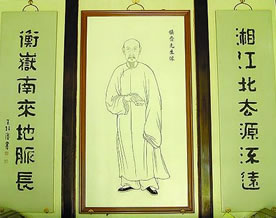 湘江北去源深遠
先生像
衡嶽南來地脈長